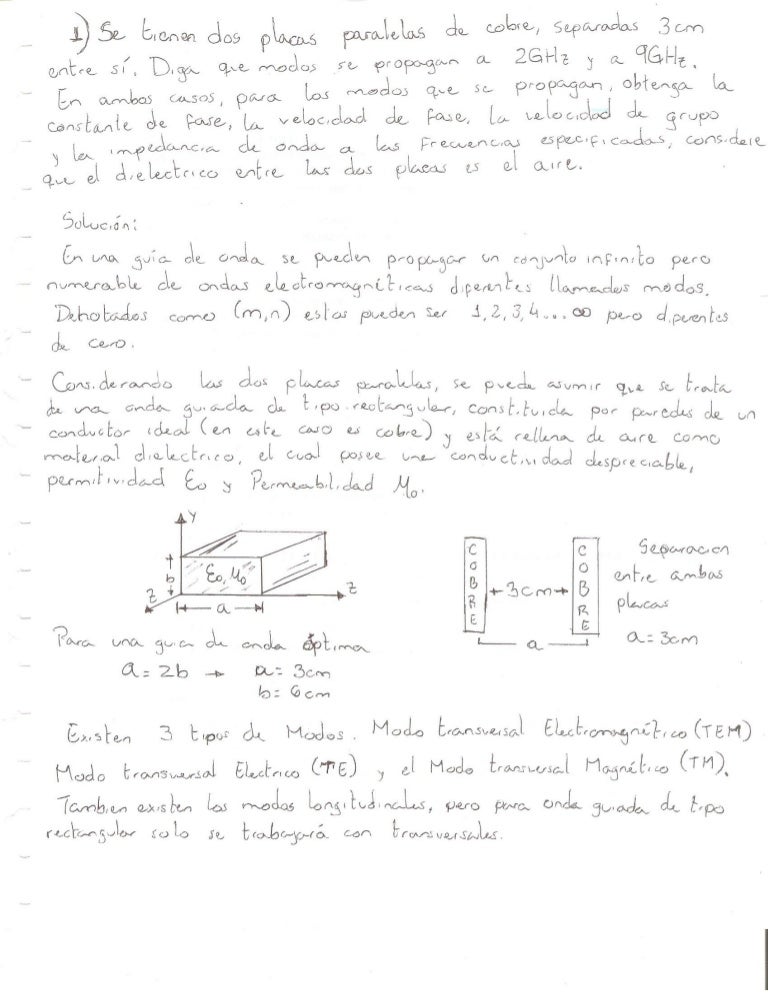 1) Se tienen dos placas paralelas de cobre, separadas 3cm
entre sí. Diga que modos se propagan a 2GHz y a 9GHz.
En ambos casos, para los modos que se propagan, obtenga la
constante de fase, la velocidad de fase, la velocidad de grupo
y la impedancia de onda a las frecuencias especificadas, considere
que el dielectrico entre las dos placas es el aire.
Solución:
En una guía de onda se pueden propagar un conjunto infinito pero
numerable de ondas electromagnéticas diferentes llamadas modos.
Denotados como (m,n) estas pueden ser 1,2,3,4...∞ pero diferentes
de cero.
Considerando las dos placas paralelas, se puede asumir que se trata
de una onda guiada de tipo rectangular, constituida por paredes de un
conductor ideal (en este caso es cobre) y está rellena de aire como
material dielectrico, el cual posee una conductividad despreciable,
permitividad ε0 y Permeabilidad μ0.
Y
b
ε0, μ0
z
z
a
COBRE
3cm
COBRE
a
Separacion
entre ambas
placas
a=3cm
Para una guia de onda óptima
a=2b → a=3cm
b=6cm
Existen 3 tipos de Modos. Modo transversal Electromagnético (TEM)
Modo transversal Electrico (TE) y el Modo transversal Magnético (TM).
Tambien existen los modos longitudinales, pero para onda guiada de tipo
rectangular solo se trabajará con transversales.